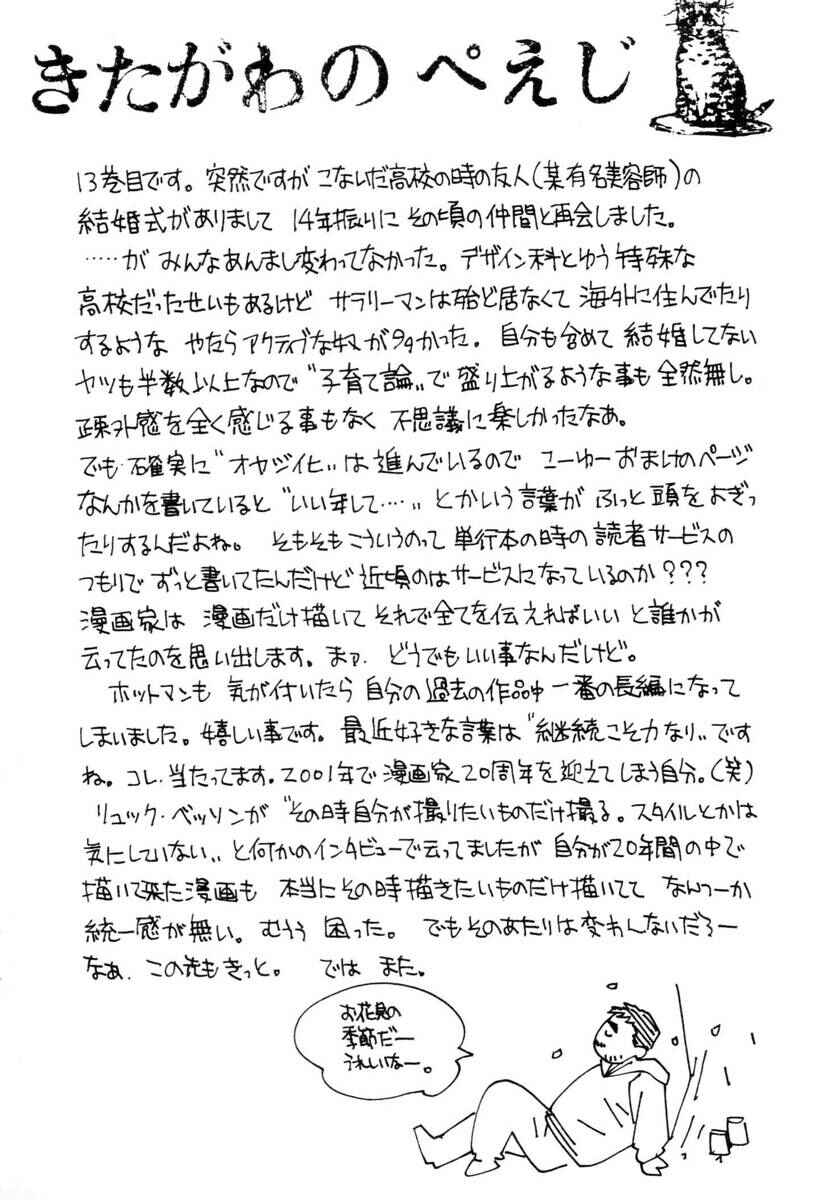 きたがわのぺえじ
13巻目です。突然ですが こないだ高校の時の友人(某有名美容師)の
結婚式がありまして 14年振りに その頃の仲間と再会しました。
……が みんなあんまし変わってなかった。デザイン科とゆう特殊な
高校だったせいもあるけど サラリーマンは殆ど居なくて 海外に住んでたり
するような やたらアクティブな奴が多かった。自分も含めて 結婚してない
ヤツも半数以上なので“子育て論„で 盛り上がるような事も全然無し。
疎外感を全く感じる事もなく 不思議に楽しかったなあ。
でも・確実に“オヤジ化„は進んでいるので こーゆーおまけのページ
なんかを書いていると“いい年して……„とかいう言葉が ふっと頭をよぎっ
たりするんだよね。 そもそもこういうのって 単行本の時の読者サービスの
つもりで ずっと書いてたんだけど 近頃のはサービスになっているのか???
漫画家は 漫画だけ描いて それで全てを伝えればいい と誰かが
云ってたのを思い出します。まァ. どうでもいい事なんだけど。
ホットマンも 気が付いたら 自分の過去の作品中 一番の長編になって
しまいました。嬉しい事です。最近好きな言葉は“継続こそ力なり„です
ね。コレ.当たってます.2001年で漫画家20周年を迎えてしまう自分。(笑)
リュック・ベッソンが“その時自分が撮りたいものだけ撮る。スタイルとかは
気にしていない„と何かのインタビューで云ってましたが 自分が20年間の中で
描いて来た漫画も 本当にその時描きたいものだけ描いてて なんつーか
統一感が無い。むうう 困った。でもそのあたりは変わんないだろー
なぁ. この先もきっと。 では また。
お花見の
季節だー
うれしいなー。